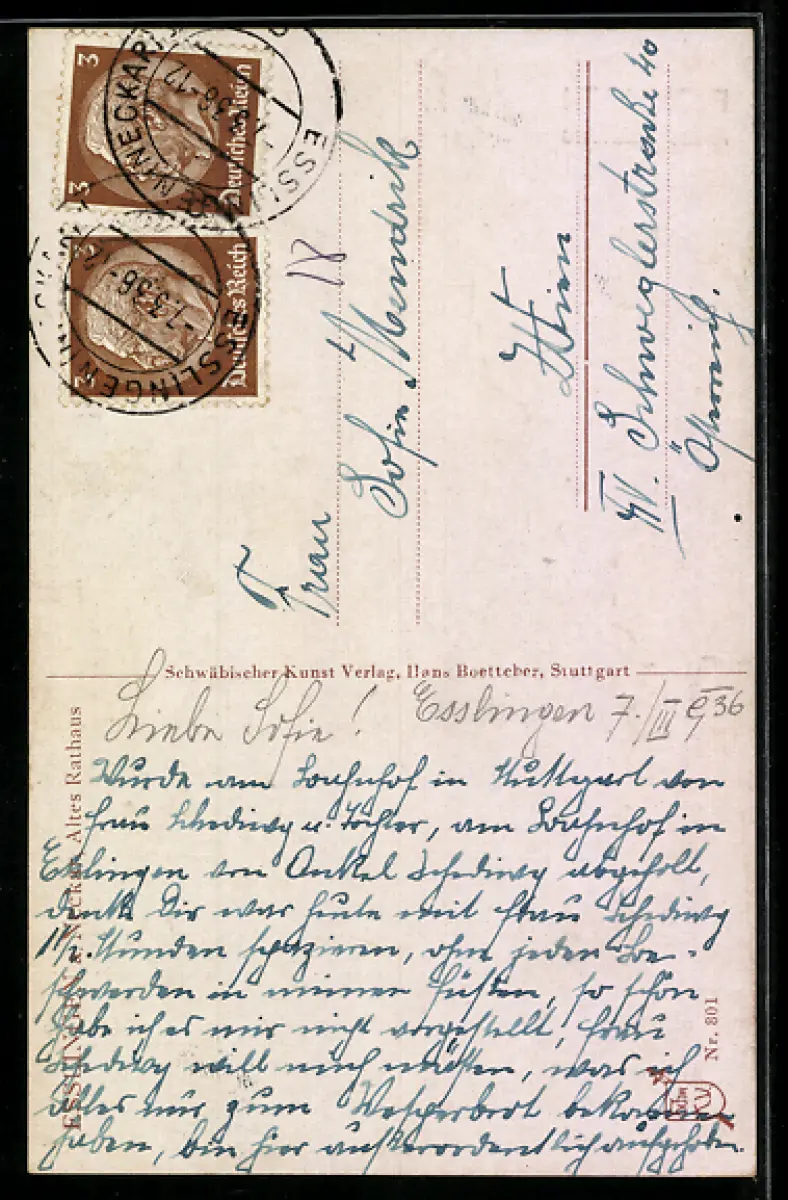 3
3
Deutsches Reich
3
3
Deutsches Reich
ESSLINGEN (NECKAR)
-7.3.36-12
ESSLINGEN (NECKAR)
-7.3.36-12
18
Frau
Sofie Mendrik
Wien
XV. Schweglerstraße 40
Österreich.
Schwäbischer Kunst Verlag, Hans Boetteher, Stuttgart
ESSLINGEN a. Neckar Altes Rathaus
Liebe Sofie! Esslingen 7./III 936
Wurde am Bahnhof in Stuttgart von
Frau Schediwy u. Tochter, am Bahnhof in
Esslingen von Onkel Schediwy abgeholt,
denke Dir war heute mit Frau Schediwy
1½ Stunden spazieren, ohne jeden Be-
schwerden in meinen Füßen, so schön
habe ich es mir nicht vorgestellt, Frau
Schediwy will mich mästen, was ich
alles nur zum Vesperbrot bekommen
haben, bin hier außerordentlich aufgehoben.
Nr. 801